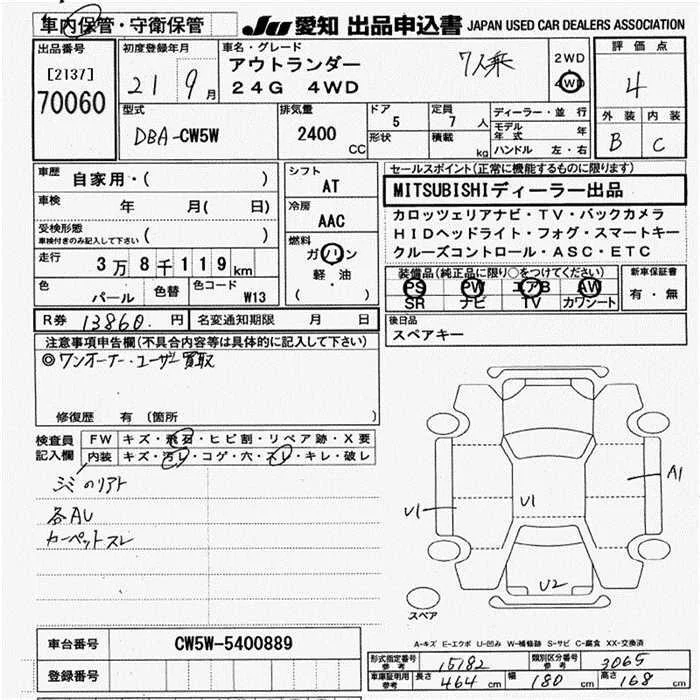 車内保管・守衛保管 JU 愛知 出品申込書 JAPAN USED CAR DEALERS ASSOCIATION
出品番号 初度登録年月 車名・グレード 評価点
[2137] 21 9月 アウトランダー 7人乗 2WD 4
70060 24G 4WD 4WD
外装 内装
型式 排気量 ドア 定員 ディーラー・並行 B C
DBA-CW5W 2400 CC 5 7 人 モデル年式 年
形状 積載 kg ハンドル 左・右
車歴 自家用・( ) シフト AT セールスポイント(正常に機能するものに限ります)
車検 年 月( 日) 冷房 AAC MITSUBISHIディーラー出品
受検形態 ( ) カロッツェリアナビ・TV・バックカメラ
車検付きのみ記入して下さい 燃料 HIDヘッドライト・フォグ・スマートキー
走行 3万8千119km ガソリン クルーズコントロール・ASC・ETC
軽・油 装備品(純正品に限り○をつけてください) 新車保証書
色 パール 色替 色コード W13 ( ) PS PW エアB AW 有・無
SR ナビ TV カワシート
R券 13860. 円 名変通知期限 月 日 後日品
注意事項申告欄(不具合内容等は具体的に記入して下さい) スペアキー
◎ワンオーナー・ユーザー買取
修復歴 有 (箇所 )
検査員記入欄 FW キズ・飛石・ヒビ割・リペア跡・X要
内装 キズ・汚レ・コゲ・穴・スレ・キレ・破レ
各AU
カーペットスレ
A1
U1
U1
U2
スペア
車台番号 CW5W-5400889 A-キズ E-エクボ U-凹み W-補修跡 S-サビ C-腐食 XX-交換済
登録番号 形式指定番号 参考 15182 類別区分番号 参考 3065
車庫証明用 参考 長さ 464 cm 幅 180 cm 高さ 168 cm